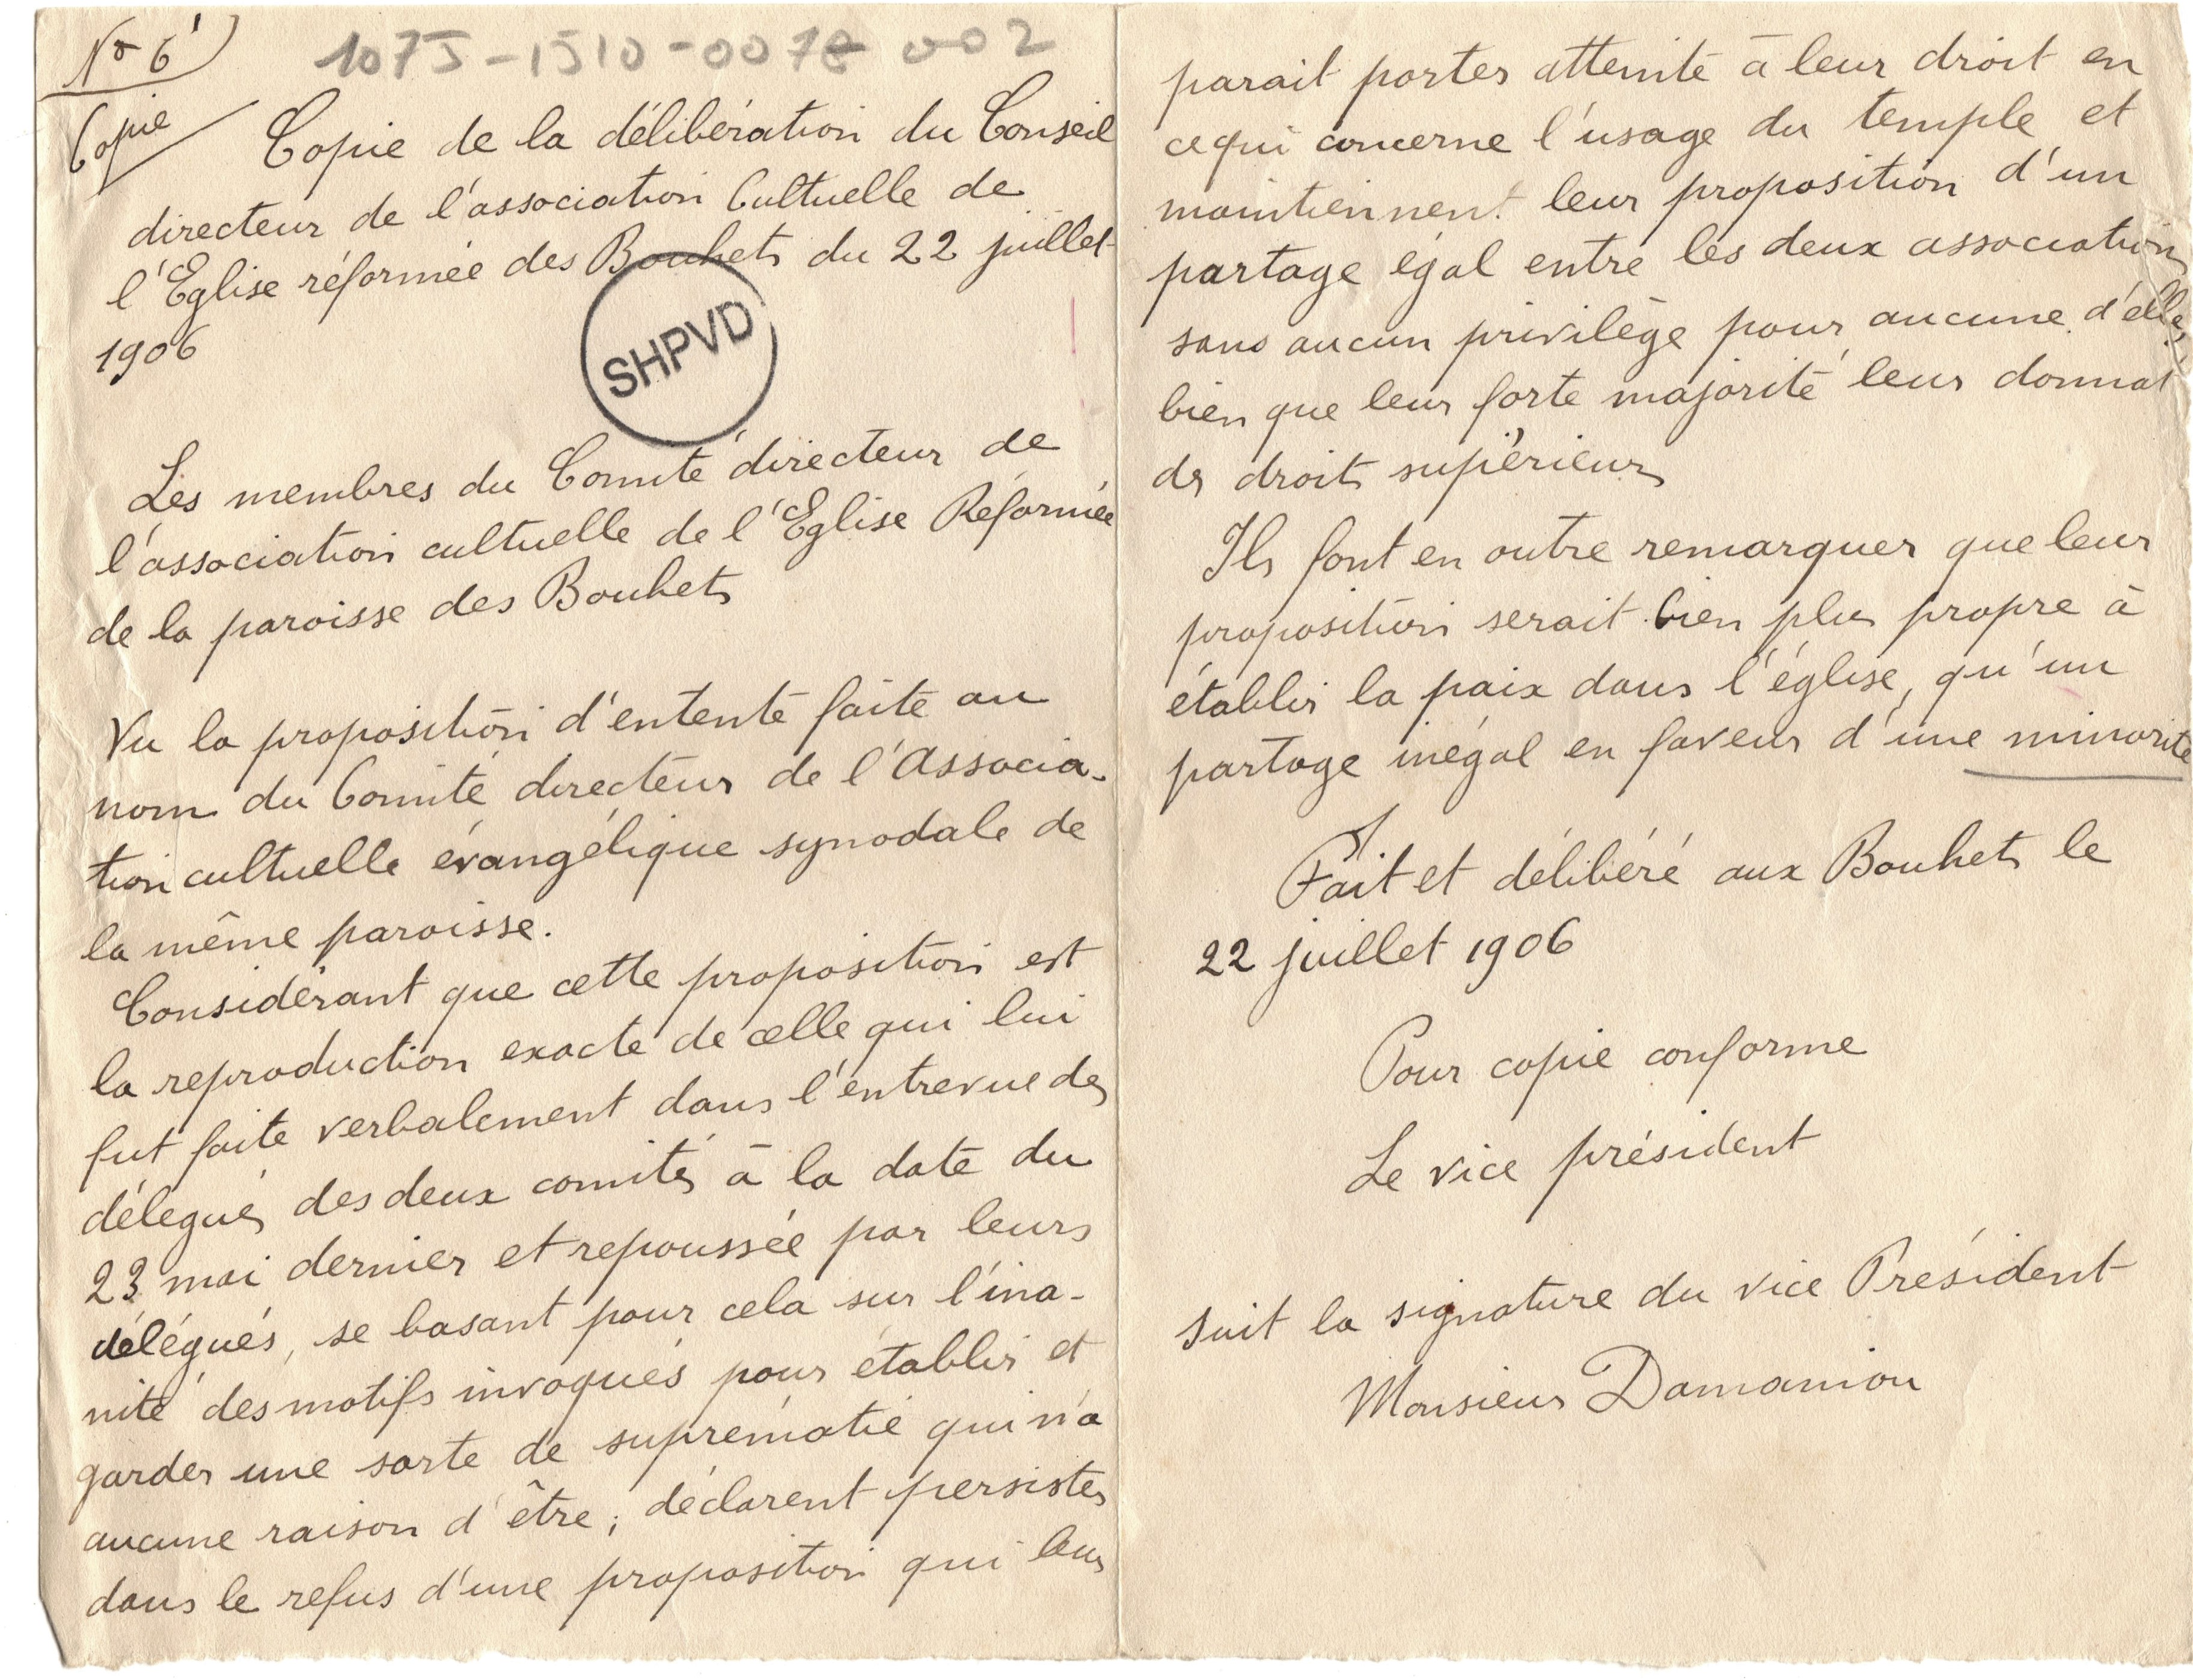 No 6
1075-1510-0078 002
Copie
Copie de la délibération du Conseil
directeur de l'association Cultuelle de
l'Eglise réformée des Bouhets du 22 juillet
1906
SHPVD
Les membres du Comité directeur de
l'association cultuelle de l'Eglise Réformée
de la paroisse des Bouhets
Vu la proposition d'entente faite au
nom du Comité directeur de l'Associa-
tion cultuelle évangélique synodale de
la même paroisse.
Considérant que cette proposition est
la reproduction exacte de celle qui lui
fut faite verbalement dans l'entrevue des
délégués des deux comités à la date du
23 mai dernier et repoussée par leurs
délégués, se basant pour cela sur l'ina-
nité des motifs invoqués pour établir et
garder une sorte de suprématie qui n'a
aucune raison d'être; déclarent persister
dans le refus d'une proposition qui leur
parait porter atteinte à leur droit en
ce qui concerne l'usage du temple et
maintiennent leur proposition d'un
partage égal entre les deux associations
sans aucun privilège pour aucune d'elles
bien que leur forte majorité leur donnat
des droits supérieurs
Ils font en outre remarquer que leur
proposition serait bien plus propre à
établir la paix dans l'église, qu'un
partage inégal en faveur d'une minorité
Fait et délibéré aux Bouhets le
22 juillet 1906
Pour copie conforme
Le vice président
suit la signature du vice Président
Monsieur Damaniou